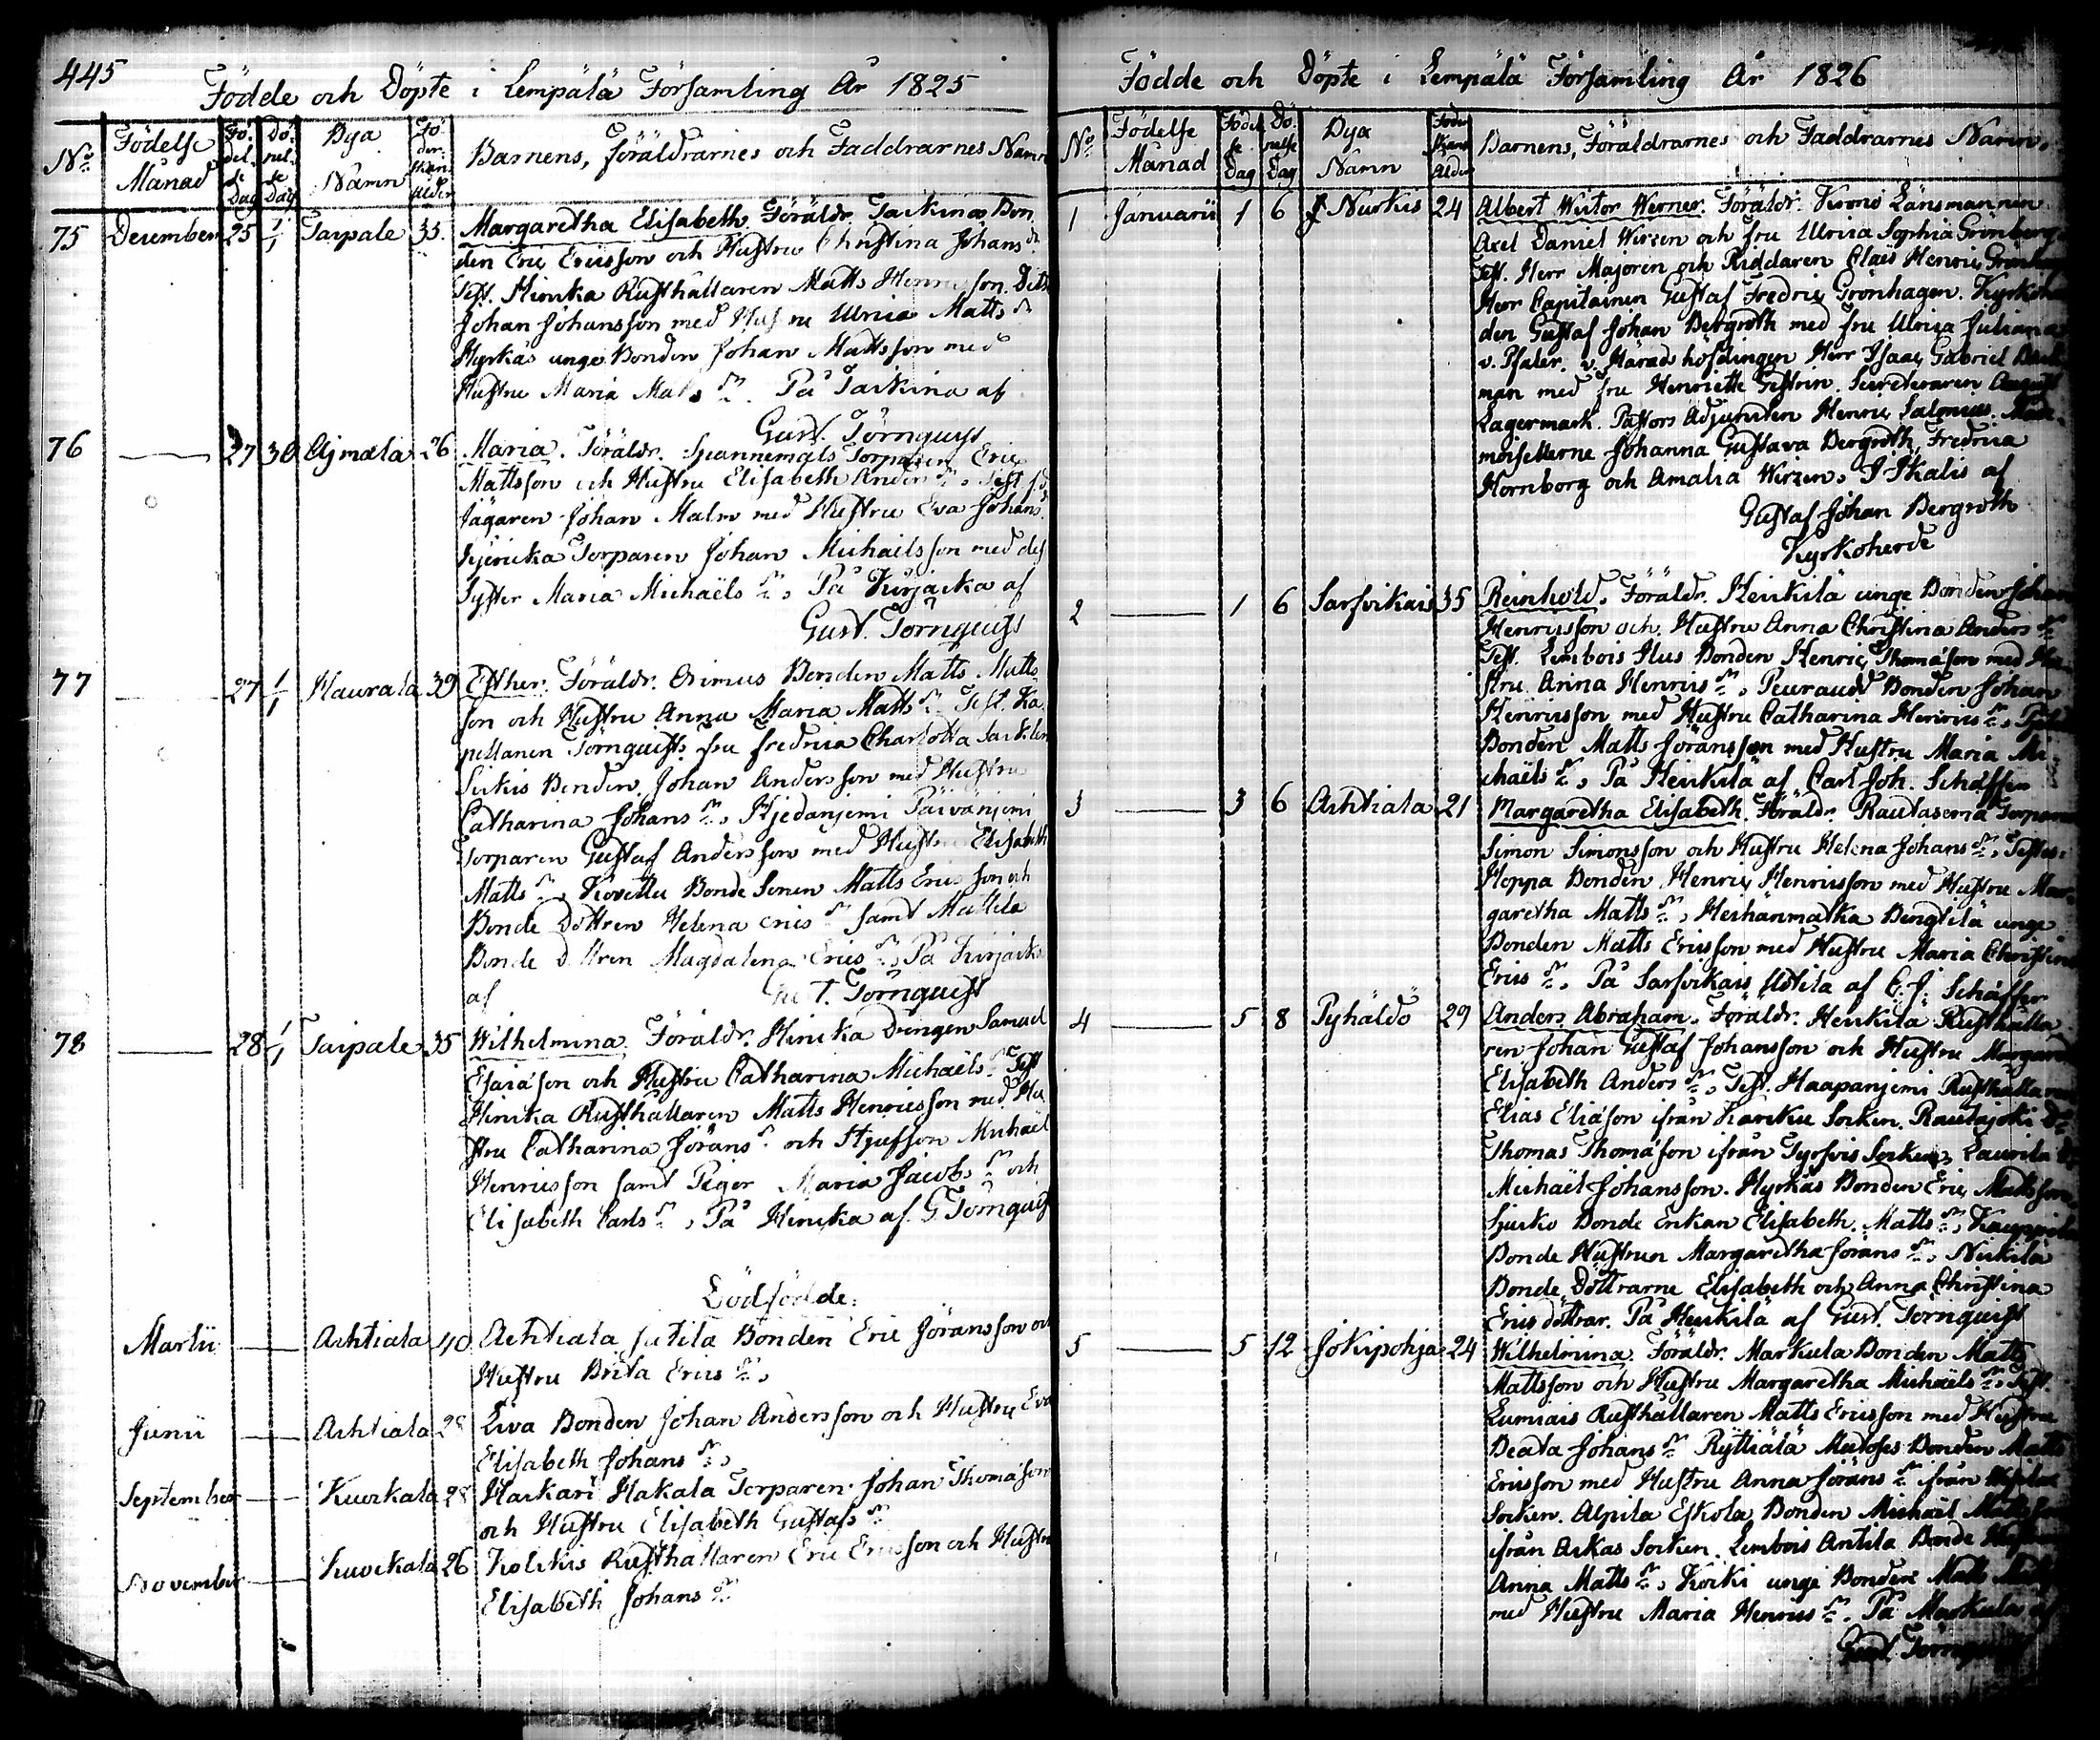 445
Födde och Döpte i Lempälä Församling År 1825
No. Födelse Månad Födelse Dag Döpelse Dag Bya Namn Föderskans Ålder Barnens, föräldrarnes och Faddrarnes Namn
75 December 25 1/1 Taipale 35. Margaretha Elisabeth. Föräldr. Taikina Bon
den Eric Ericsson och Hustru Christina Johansdr
Test. Hinika Rusthållaren Matts Henricsson. Dito
Johan Johansson med Hustru Ulrica Mattsdr
Hyrkäs unge Bonden Johan Mattsson med
Hustru Maria Matsdr. På Taikina af
Gust. Törnquist
76 — 27 30 Ajmala 26 Maria. Föräldr. Torparen Eric
Mattsson och Hustru Elisabeth Andersdr. Test.
Jägaren Johan Malm med Hustru Eva Johansdr
Torparen Johan Michaelsson med des
Syster Maria Michaëlsdr. På Kurjacka af
Gust. Törnquist
77 — 27 1/1 Haurala 39 Esther. Föräldr. Bonden Matts Matts
son och Hustru Anna Maria Mattsdr. Test. Ka
pellanen Törnquists fru Fredrica Charlotta
Bonden Johan Andersson med Hustru
Catharina Johansdr. Hjedanjemi Päivänjemi
Torparen Gustaf Andersson med Hustru Elisabeth
Mattsdr. Bonde Sonen Matts Ericsson och
Bonde Dottren Helena Ericsdr samt Mattila
Bonde Dottren Magdalena Ericsdr. På Kurjacka
af Gust. Törnquist
78 — 28 1/1 Taipale 35 Wilhelmina. Föräldr. Hinika Drengen Samuel
Esaiason och Hustru Catharina Michaelsdr. Test
Hinika Rusthållaren Matts Henricsson med Hu
stru Catharina Joransdr och Styfson Michael
Henricsson samt Pigor Maria Jacobsdr och
Elisabeth Carlsdr. På Hinika af G Törnquist
Dödfödde.
Martii — Achtiala 40 Achtiala Jutila Bonden Eric Joransson och
Hustru Brita Ericsdr.
Junii — Achtiala 28 Liva Bonden Johan Andersson och Hustru Eva
Elisabeth Johansdr.
September — Kuokala 28 Haikari Hakala Torparen Johan Thomason
och Hustru Elisabeth Gustafsdr
November — Kuokala 26 Kolikis Rusthållaren Eric Ericsson och Hustru
Elisabeth Johansdr
Födde och Döpte i Lempälä Församling År 1826
No. Födelse Månad Födelse Dag Döpelse Dag Bya Namn Föderskans Ålder Barnens, Föräldrarnes och Faddrarnes Namn.
1 Januarii 1 6 Nurkis 24 Albert Wictor Werner. Föräldr. Krono Länsmannen
Axel Daniel Wirzen och fru Ulrica Sophia Grönberg
Test. Herr Majoren och Riddaren Claës Henric
Herr Capitainen Gustaf Fredric Grönhagen. Kyrkoher
den Gustaf Johan Bergroth med fru Ulrica Juliana
v. Psaler. v. Häradshöfdingen Herr Isaac Gabriel
man med fru Henriette Gestrin. Secreteraren August
Lagermark. Pastors Adjuncten Henric Salonius. Made
moisellerne Johanna Gustava Bergroth, Fredrica
Hornborg och Amalia Wirzen.
Gustaf Johan Bergroth
Kyrkoherde
2 — 1 6 Sarsvikais 35 Reinhold. Föräldr. Heikkilä unge Bonden Johan
Henricsson och Hustru Anna Christina Andersdr
Test. Lembois Hus Bonden Henric Thomason med Hu
stru Anna Henricsdr. Bonden Johan
Henricsson med Hustru Catharina Henricsdr.
Bonden Matts Joransson med Hustru Maria Mi
chaëlsdr. På Heikkilä af Carl Joh. Schäffer
3 — 3 6 Achtiala 21 Margaretha Elisabeth. Föräldr. Rautasema Torparen
Simon Simonsson och Hustru Helena Johansdr. Testes.
Hoppa Bonden Henric Henricsson med Hustru Mar
garetha Mattsdr. Heikänmatka Bengtilä unge
Bonden Matts Ericsson med Hustru Maria Christina
Ericsdr. På Sarsvikais Uotila af C. J. Schäffer
4 — 5 8 Pyhäldö 29 Anders Abraham. Föräldr. Heikilä Rusthålla
ren Johan Gustaf Johansson och Hustru Margareta
Elisabeth Andersdr. Test. Haapanjemi Rusthållaren
Elias Eliason ifrån Karcku Socken. Rautajoki
Thomas Thomason ifrån Tyrfvis Socken, Laurila
Michaël Johansson. Hyrkäs Bonden Eric Mattsson.
Bonde Enkan Elisabeth Mattsdr.
Bonde Hustrun Margaretha Joransdr. Nickilä
Bonde Döttrarne Elisabeth och Anna Christina
Ericsdöttrar. På Heickilä af Gust. Törnquist
5 — 5 12 Jokipohja 24 Wilhelmina. Föräldr. Markula Bonden Matts
Mattsson och Hustru Margaretha Michaëlsdr. Test.
Lumiais Rusthållaren Matts Ericsson med Hustru
Beata Johansdr Rÿttiälä Matoses Bonden Matts
Ericsson med Hustru Anna Joransdr ifrån
Socken. Alpila Eskola Bonden Michaël Mattsson
ifrån Ackas Socken. Lembois Antila Bonde Hustrun
Anna Mattsdr. Koiki unge Bonden Matts
med Hustru Maria Henricsdr. På Markula af
Gust. Törnquist